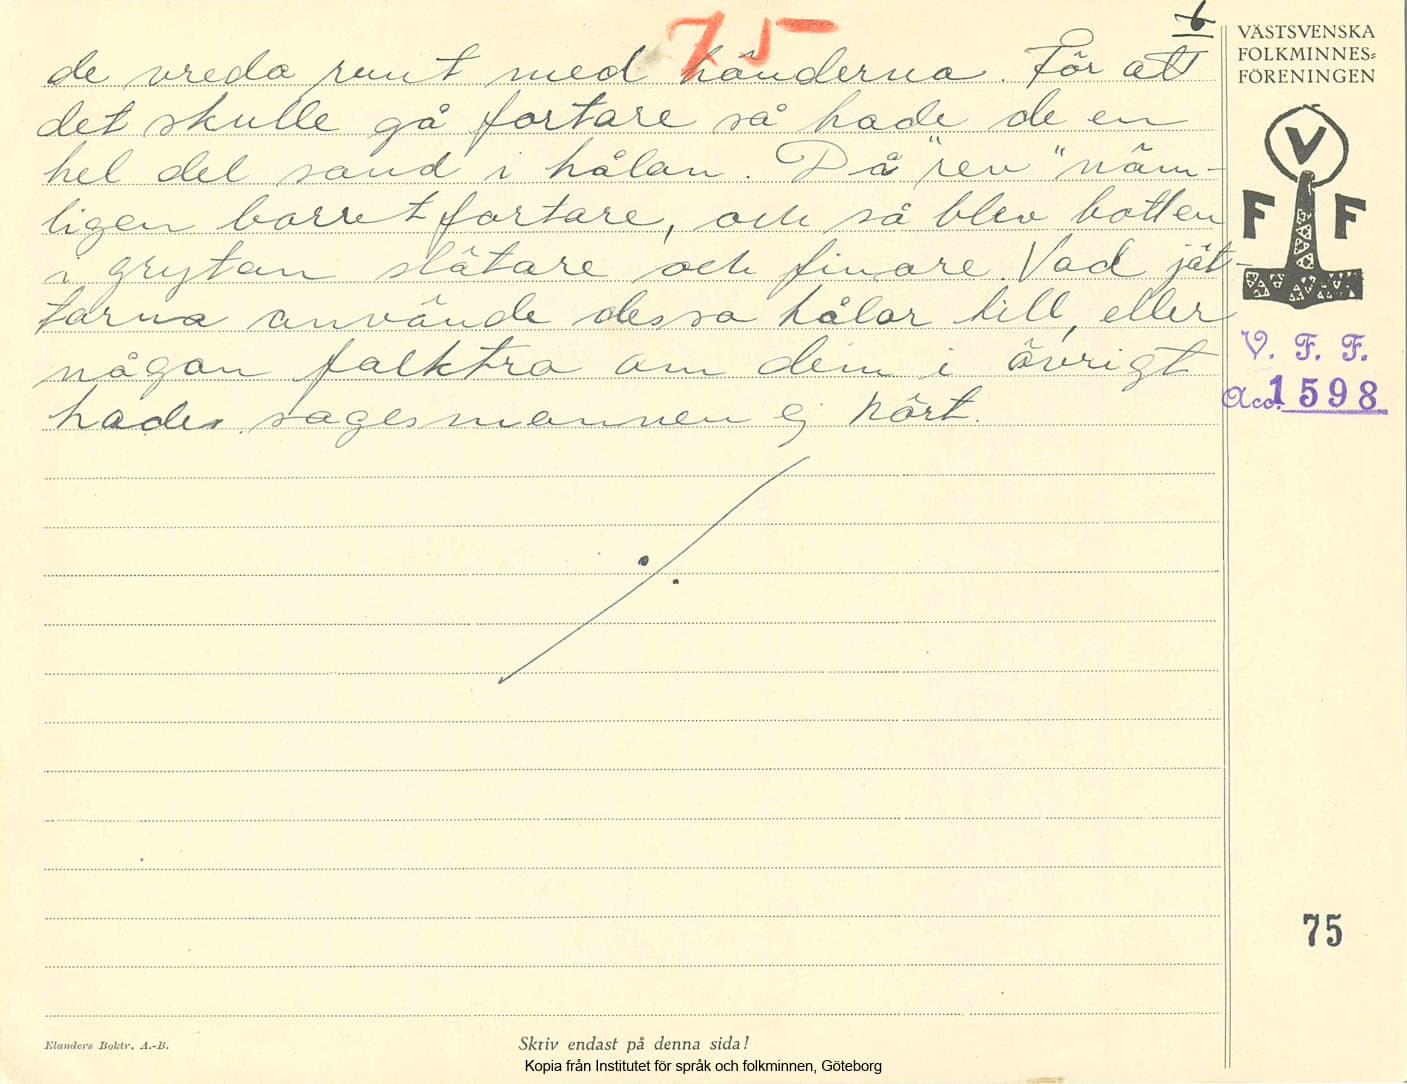 75
6
de vreda runt med händerna. För att
det skulle gå fortare så hade de en
hel del sand i hålan. Då "rev" näm-
ligen borret fortare, och så blev botten
i grytan slätare och finare. Vad jät-
tarna använde dessa hålor till, eller
någon folktro om dem i övrigt
hade sagesmannen ej hört.
VÄSTSVENSKA
FOLKMINNES=
FÖRENINGEN
V
F F
V. F. F.
Acc. 1598
75
Elanders Boktr. A.-B.
Skriv endast på denna sida!
Kopia från Institutet för språk och folkminnen, Göteborg